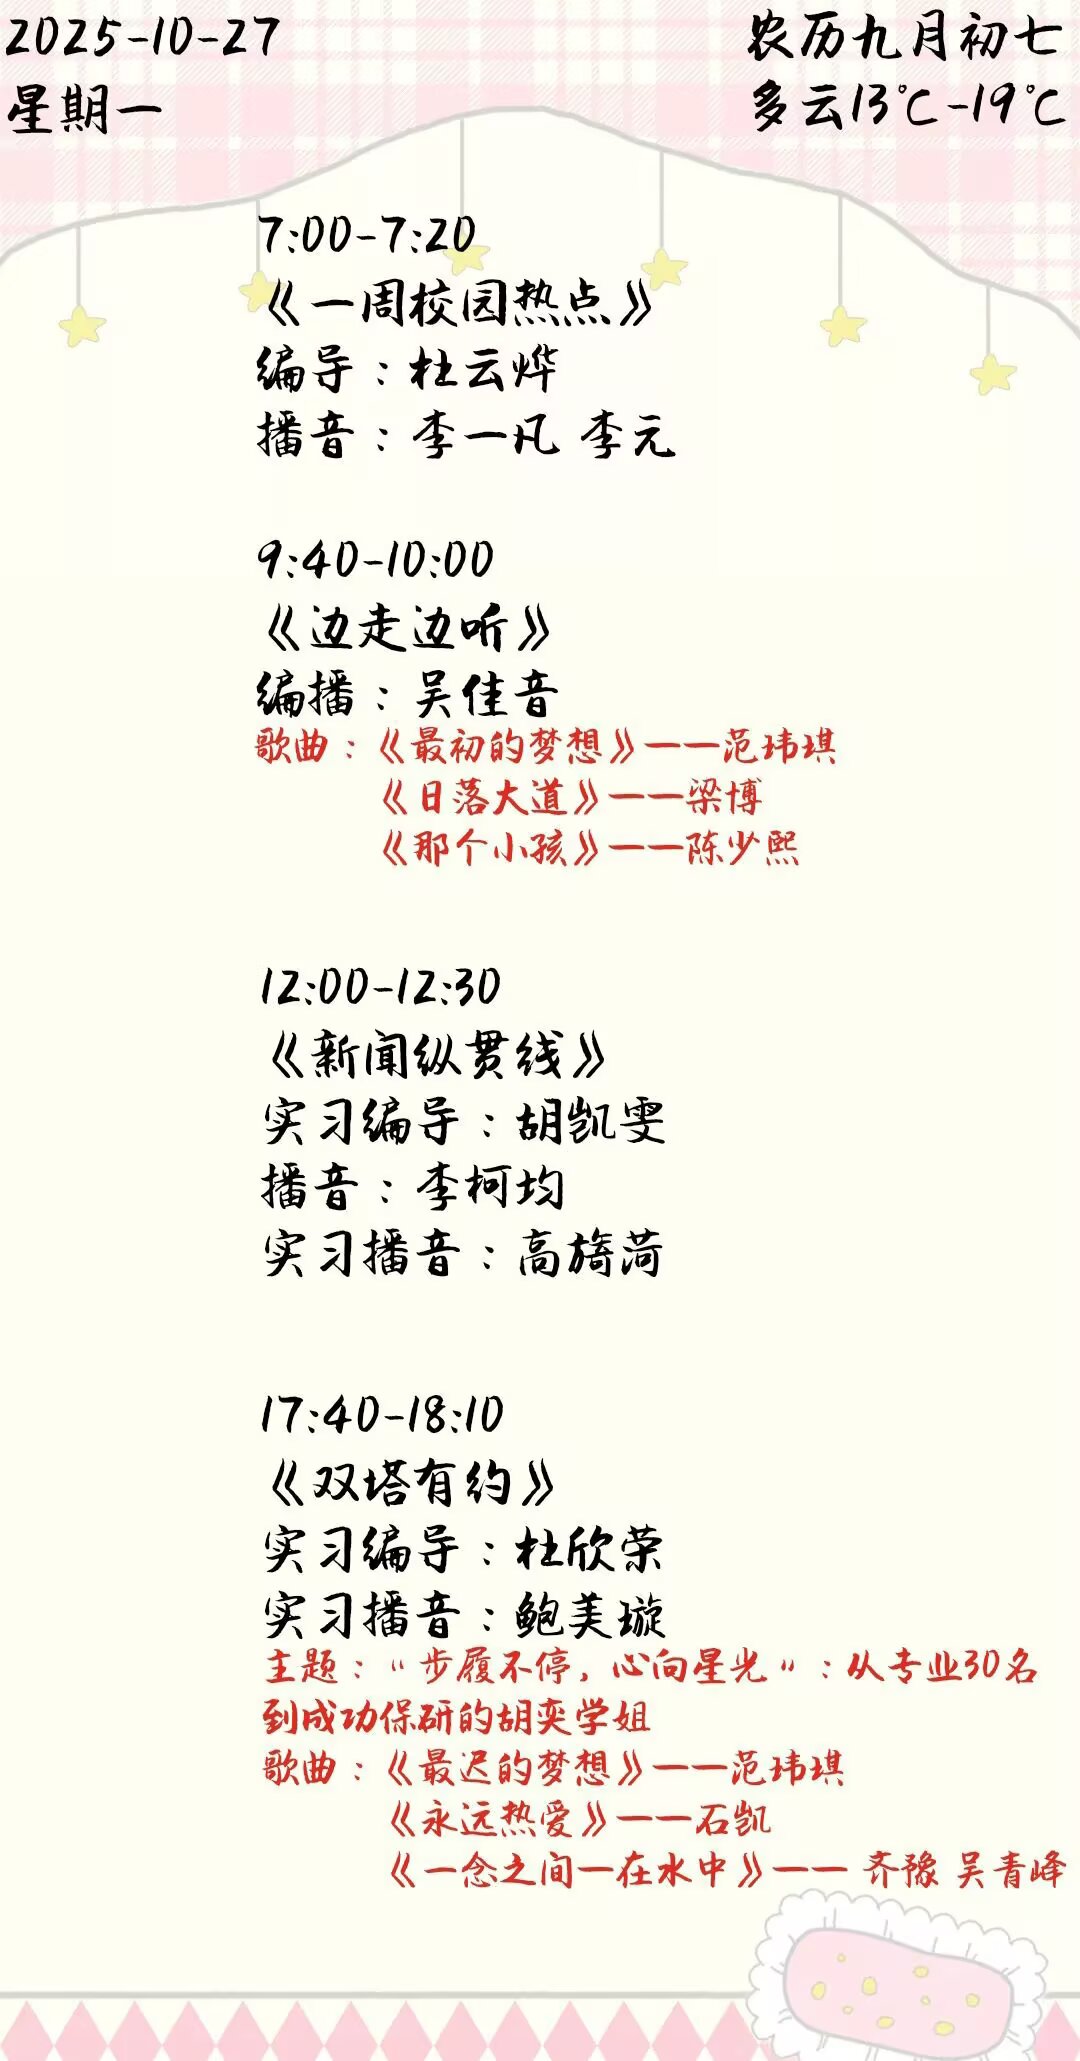 2025-10-27
农历九月初七
星期一
多云13℃-19℃
7:00-7:20
《一周校园热点》
编导：杜云烨
播音：李一凡 李元
9:40-10:00
《边走边听》
编播：吴佳音
歌曲：《最初的梦想》——范玮琪
《日落大道》——梁博
《那个小孩》——陈少熙
12:00-12:30
《新闻纵贯线》
实习编导：胡凯雯
播音：李柯均
实习播音：高旖菏
17:40-18:10
《双塔有约》
实习编导：杜欣荣
实习播音：鲍美璇
主题：“步履不停，心向星光”：从专业30名
到成功保研的胡奕学姐
歌曲：《最迟的梦想》——范玮琪
《永远热爱》——石凯
《一念之间一在水中》—— 齐豫 吴青峰